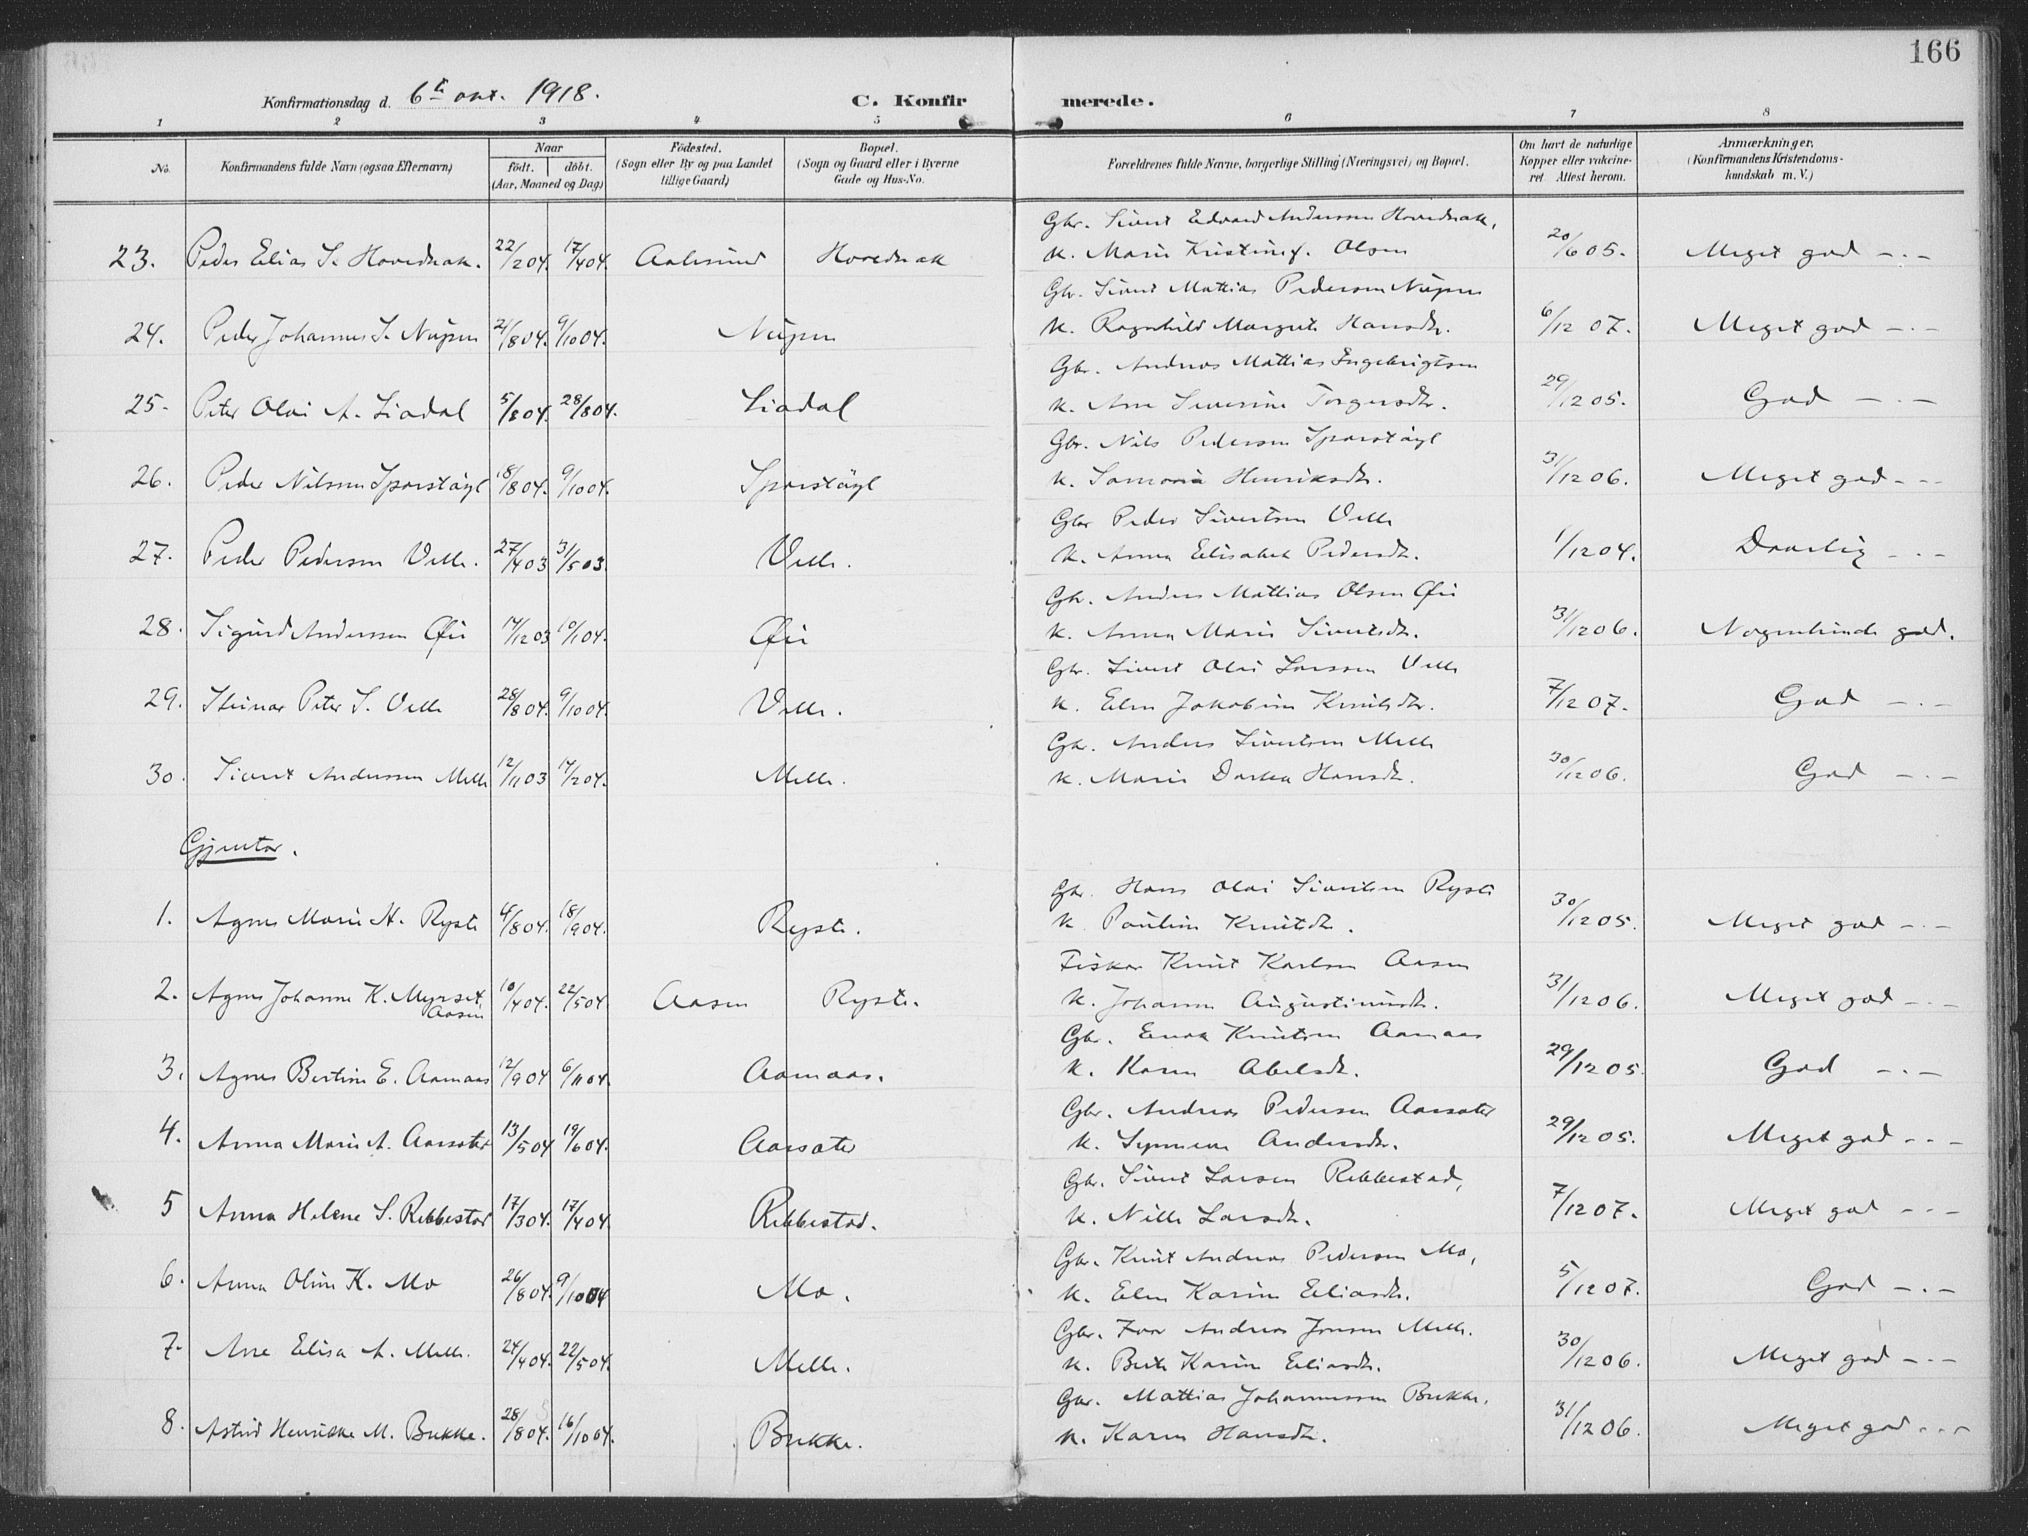 166
Konfirmationsdag d. 6te okt. 1918.
C. Konfir merede.
1 2 3 4 5 6 7 8
No. Konfirmandens fulde Navn (ogsaa Efternavn)
Naar
födt. döbt.
(Aar, Maaned og Dag)
Födested.
(Sogn eller By og paa Landet
tillige Gaard)
Bopæl.
(Sogn og Gaard eller i Byerne
Gade og Hus-No.
Forældrenes fulde Navne, borgerlige Stilling (Næringsvei) og Bopæl.
Om havt de naturlige
Kopper eller vakcine-
ret. Attest herom.
Anmærkninger,
(Konfirmandens Kristendoms-
kundskab m. V.)
Gbr. Sivert Edvard Andersen Hovednak,
23. Peder Elias S. Hovednak. 22/2 04. 17/4 04. Aalesund Hovednak K. Marie Kristine f. Olsen 20/6 05. Meget god - . -
Gbr. Sivert Mattias Pedersen Nupen
24. Peder Johannes S. Nupen 21/8 04. 9/10 04. Nupen K. Ragnhild Margrete Hansdtr. 6/12 07. Meget god - . -
Gbr. Andreas Mattias Engebrigtsen
25. Peter Olai A. Liadal 5/8 04. 28/8 04. Liadal K. Ane Severine Torgersdtr. 29/12 05. God - . -
Gbr. Nils Pedersen Sporstøyl
26. Peder Nilsen Sporstøyl 18/8 04. 9/10 04. Sporstøyl K. Samoria Henriksdtr. 31/12 06. Meget god - . -
Gbr Peder Sivertsen Velle
27. Peder Pedersen Velle. 27/4 03 31/5 03. Velle. K. Anna Elisabet Pedersdtr. 1/12 04. Daarlig - . -
Gbr. Anders Mattias Olsen Øie
28. Sigurd Andersen Øie 14/12 03 10/1 04. Øie K. Anna Marie Sivertsdtr. 31/12 06. Nogenlunde god.
Gbr. Sivert Olai Larssen Velle
29. Steinar Peter S. Velle 28/8 04. 9/10 04. Velle. K. Elen Jakobine Knutsdtr. 7/12 07. God - . -
Gbr. Anders Sivertsen Melle
30. Sivert Andersen Melle 12/11 03 14/2 04. Melle. K. Marie Dortea Hansdtr. 30/12 06. God - . -
Gjentor.
Gbr. Hans Olai Sivertsen Ryste
1. Agnes Marie H. Ryste 4/8 04. 18/9 04. Ryste. K. Pauline Knutsdtr. 30/12 05. Meget god - . -
Fisker Knut Karlsen Aasen
2. Agnes Johanne K. Myrset, Aasen 10/4 04. 22/5 04. Aasen Ryste. K. Johanne Augustinusdtr. 31/12 06. Meget god - . -
Gbr. Knutsen Aamaas
3. Agnes Bertine E. Aamaas 12/9 04 6/11 04. Aamaas. K. Karen Abelsdtr. 29/12 05. God - . -
Gbr. Andreas Pedersen Aarsæter
4. Anna Marie A. Aarsæter 13/5 04 19/6 04. Aarsæter K. Synneva Andersdtr. 29/12 05. Meget god - . -
Gbr. Sivert Larsen Ribbestad,
5 Anna Helene S. Ribbestad 17/3 04. 17/4 04. Ribbestad. K. Nille Larsdtr. 7/12 07. Meget god - . -
Gbr. Knut Andreas Pedersen Mo,
6. Anna Oline K. Mo 26/8 04. 9/10 04 Mo. K. Elen Karine Eliasdtr. 5/12 07. God - . -
Gbr. Ivar Andreas Jonsen Melle.
7. Ane Elisa A. Melle. 24/4 04. 22/5 04. Melle. K. Berte Karine Eliasdtr. 30/12 06. Meget god - . -
Gbr. Mattias Johannessen Bukke,
8. Astrid Henrikke M. Bukke. 28/8 04. 16/10 04. Bukke. K. Karen Hansdtr. 31/12 06. Meget god - . -